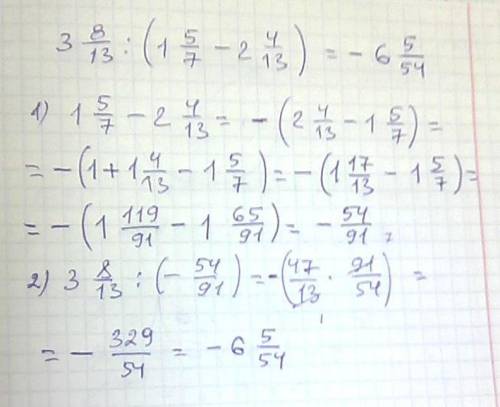 3 8/13 : (1 5/7 - 2 4/13) = - 6 5/54
1) 1 5/7 - 2 4/13 = - (2 4/13 - 1 5/7) =
= - (1 + 1 4/13 - 1 5/7) = - (1 17/13 - 1 5/7) =
= - (1 119/91 - 1 65/91) = - 54/91 ;
2) 3 8/13 : (- 54/91) = - (47/13 · 91/54) =
= - 329/54 = - 6 5/54